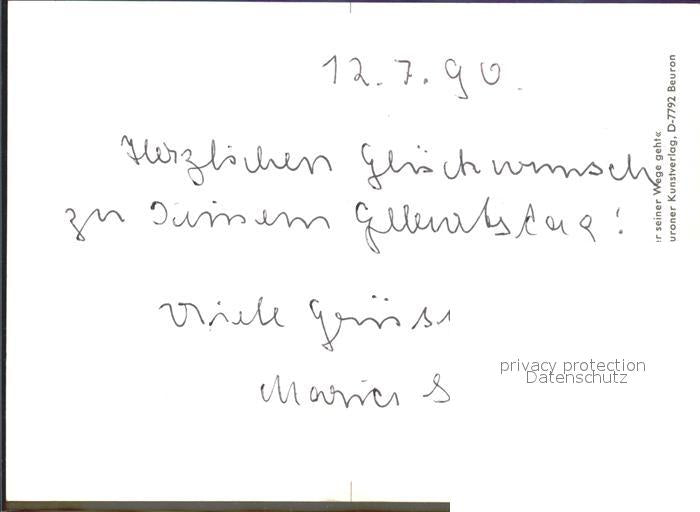 12.7.90.
Herzlichen Glückwunsch
zu Deinem Geburtstag!
Viele Grüsse
Maria S
er seiner Wege geht«
uroner Kunstverlag, D-7792 Beuron
privacy protection
Datenschutz